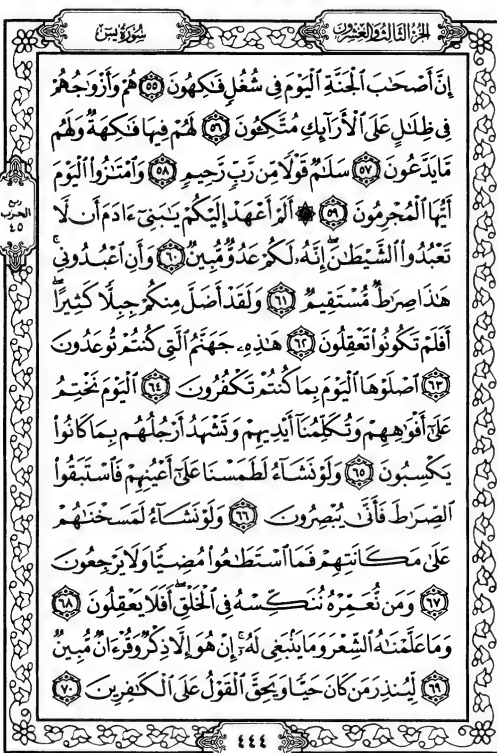 الجزء الثالث والعشرون
سورة يس
إِنَّ أَصْحَابَ الْجَنَّةِ الْيَوْمَ فِي شُغُلٍ فَاكِهُونَ ٥٥ هُمْ وَأَزْوَاجُهُمْ
فِي ظِلَالٍ عَلَى الْأَرَائِكِ مُتَّكِئُونَ ٥٦ لَهُمْ فِيهَا فَاكِهَةٌ وَلَهُم
مَّا يَدَّعُونَ ٥٧ سَلَامٌ قَوْلًا مِّن رَّبٍّ رَّحِيمٍ ٥٨ وَامْتَازُوا الْيَوْمَ
أَيُّهَا الْمُجْرِمُونَ ٥٩ ۞ أَلَمْ أَعْهَدْ إِلَيْكُمْ يَا بَنِي آدَمَ أَن لَّا
تَعْبُدُوا الشَّيْطَانَ ۖ إِنَّهُ لَكُمْ عَدُوٌّ مُّبِينٌ ٦٠ وَأَنِ اعْبُدُونِي ۚ
هَٰذَا صِرَاطٌ مُّسْتَقِيمٌ ٦١ وَلَقَدْ أَضَلَّ مِنكُمْ جِبِلًّا كَثِيرًا ۖ
أَفَلَمْ تَكُونُوا تَعْقِلُونَ ٦٢ هَٰذِهِ جَهَنَّمُ الَّتِي كُنتُمْ تُوعَدُونَ
٦٣ اصْلَوْهَا الْيَوْمَ بِمَا كُنتُمْ تَكْفُرُونَ ٦٤ الْيَوْمَ نَخْتِمُ
عَلَىٰ أَفْوَاهِهِمْ وَتُكَلِّمُنَا أَيْدِيهِمْ وَتَشْهَدُ أَرْجُلُهُم بِمَا كَانُوا
يَكْسِبُونَ ٦٥ وَلَوْ نَشَاءُ لَطَمَسْنَا عَلَىٰ أَعْيُنِهِمْ فَاسْتَبَقُوا
الصِّرَاطَ فَأَنَّىٰ يُبْصِرُونَ ٦٦ وَلَوْ نَشَاءُ لَمَسَخْنَاهُمْ
عَلَىٰ مَكَانَتِهِمْ فَمَا اسْتَطَاعُوا مُضِيًّا وَلَا يَرْجِعُونَ
٦٧ وَمَن نُّعَمِّرْهُ نُنَكِّسْهُ فِي الْخَلْقِ ۖ أَفَلَا يَعْقِلُونَ ٦٨
وَمَا عَلَّمْنَاهُ الشِّعْرَ وَمَا يَنبَغِي لَهُ ۚ إِنْ هُوَ إِلَّا ذِكْرٌ وَقُرْآنٌ مُّبِينٌ
٦٩ لِّيُنذِرَ مَن كَانَ حَيًّا وَيَحِقَّ الْقَوْلُ عَلَى الْكَافِرِينَ ٧٠
ربع
الحزب
٤٥
٤٤٤